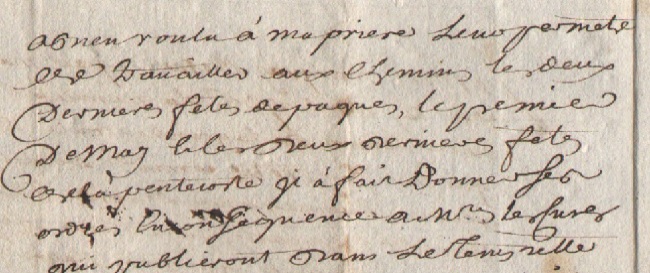 a bien voulu á ma priere Leur permetre
de travailler aux Chemins les deux
Dernieres fetes de paques, le premier
De May et les Deux Dernieres fetes
de la pentecoste et á fait Donner ses
ordres En Consequence a Mrs les Cures
qui publieront Dans Le tems